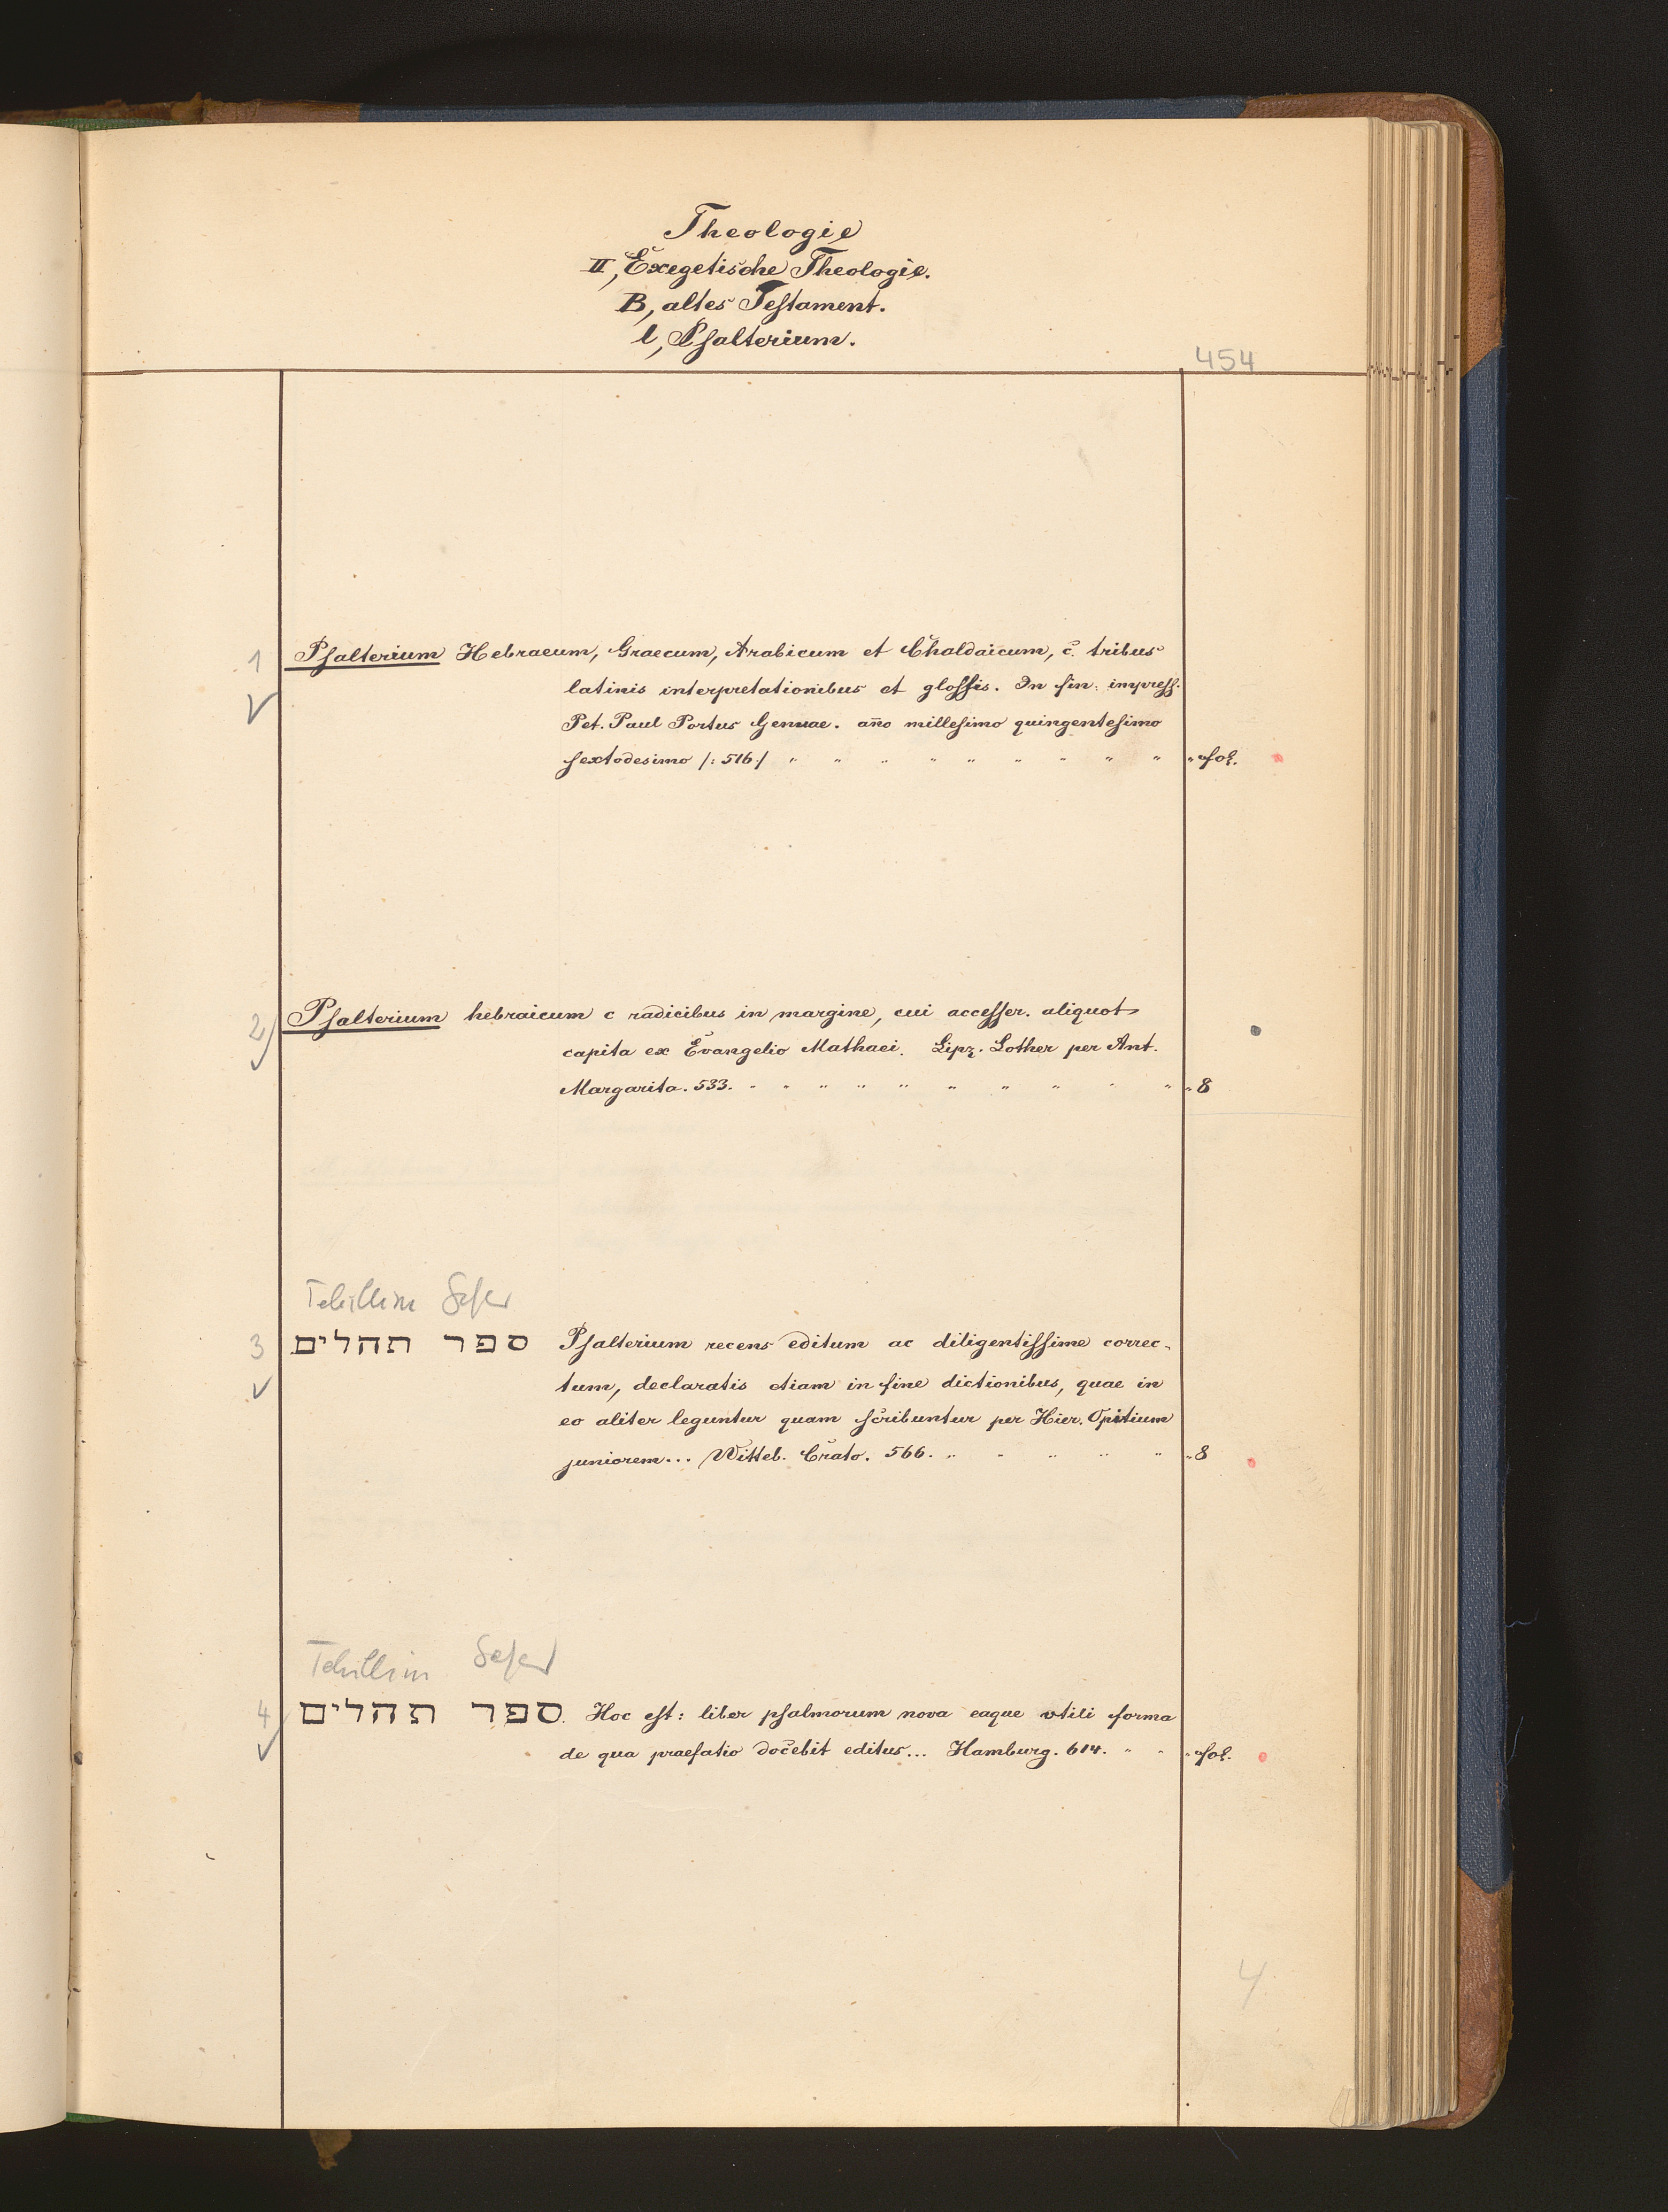 Theologie
II, Exegetische Theologie.
B, altes Testament.
l, Psalterium.
454
1 Psalterium Hebraeum, Graecum, Arabicum et Chaldaicum, c̄. tribus
latinis interpretationibus et glossis. In fin: impress.
Pet. Paul Portus Genuae. año millesimo quingentesimo
sextodesimo /: 516 :/ " " " " " " " " " " fol.
2) Psalterium hebraicum c radicibus in margine, cui accesser. aliquot
capita ex Evangelio Mathaei. Lipz. Lother per Ant.
Margarita. 533. " " " " " " " " " " " 8
Tehillim Sefer
3 ספר תהלים Psalterium recens editum ac diligentissime correc-
tum, declaratis etiam in fine dictionibus, quae in
eo aliter leguntur quam scribuntur per Hier. Opitium
juniorem... Witteb. Crato. 566. " " " " " " 8
Tehillim Sefer
4 ספר תהלים. Hoc est: liber psalmorum nova eaque utili forma
de qua praefatio docebit editus... Hamburg. 614. " " " fol.
4